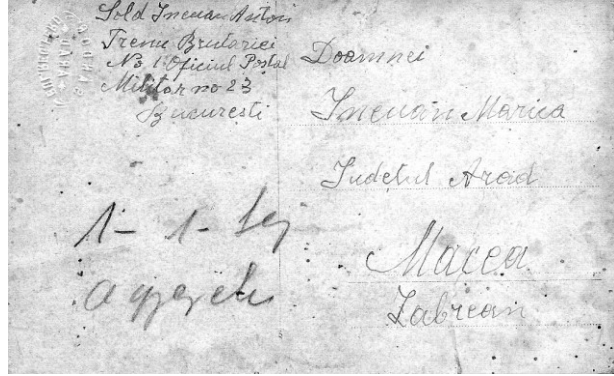 Sold Incuan Anton
Trenu Brutariei
No 1 Oficiul Postal
Militar no 23
Bucuresti
Doamnei
Incuan Marica
Judetul Arad
Macea
1- 1-